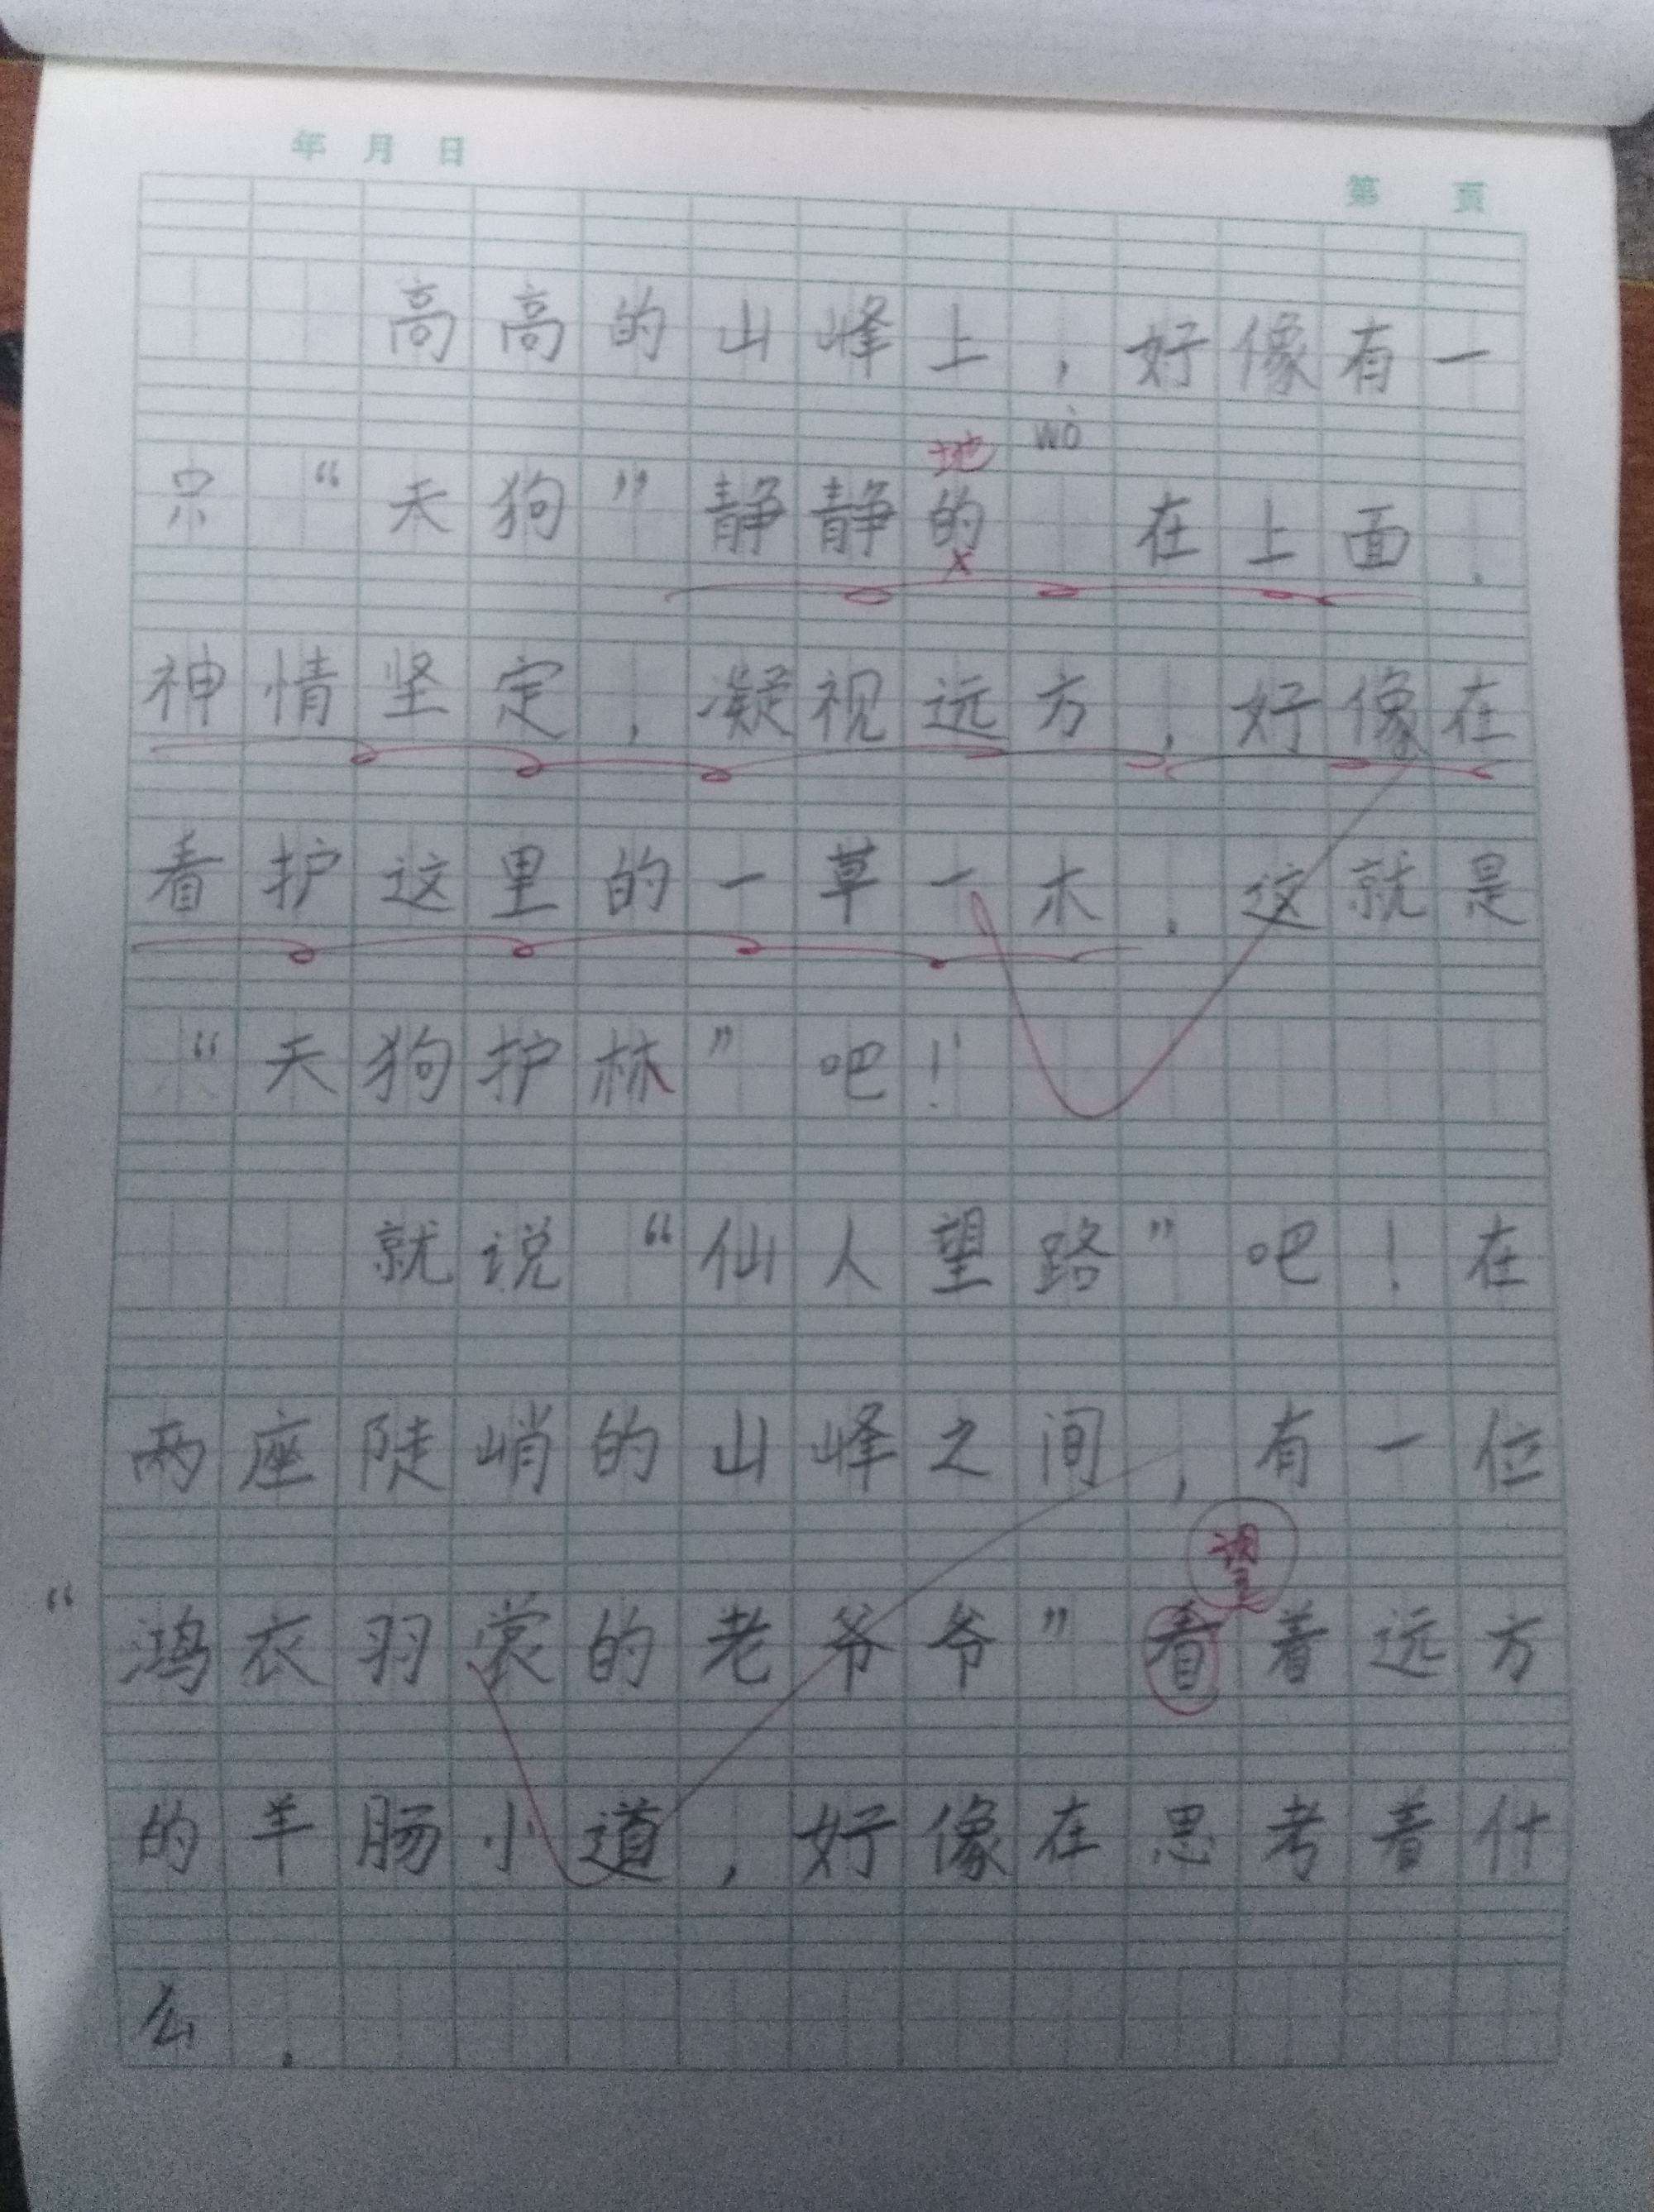 年 月 日
第 页
高高的山峰上，好像有一
地 wò
只“天狗”静静的 在上面.
神情坚定，凝视远方，好像在
看护这里的一草一木.这就是
“天狗护林”吧！
就说“仙人望路”吧！在
两座陡峭的山峰之间，有一位
望
“鸿衣羽裳的老爷爷”看着远方
的羊肠小道，好像在思考着什
么.